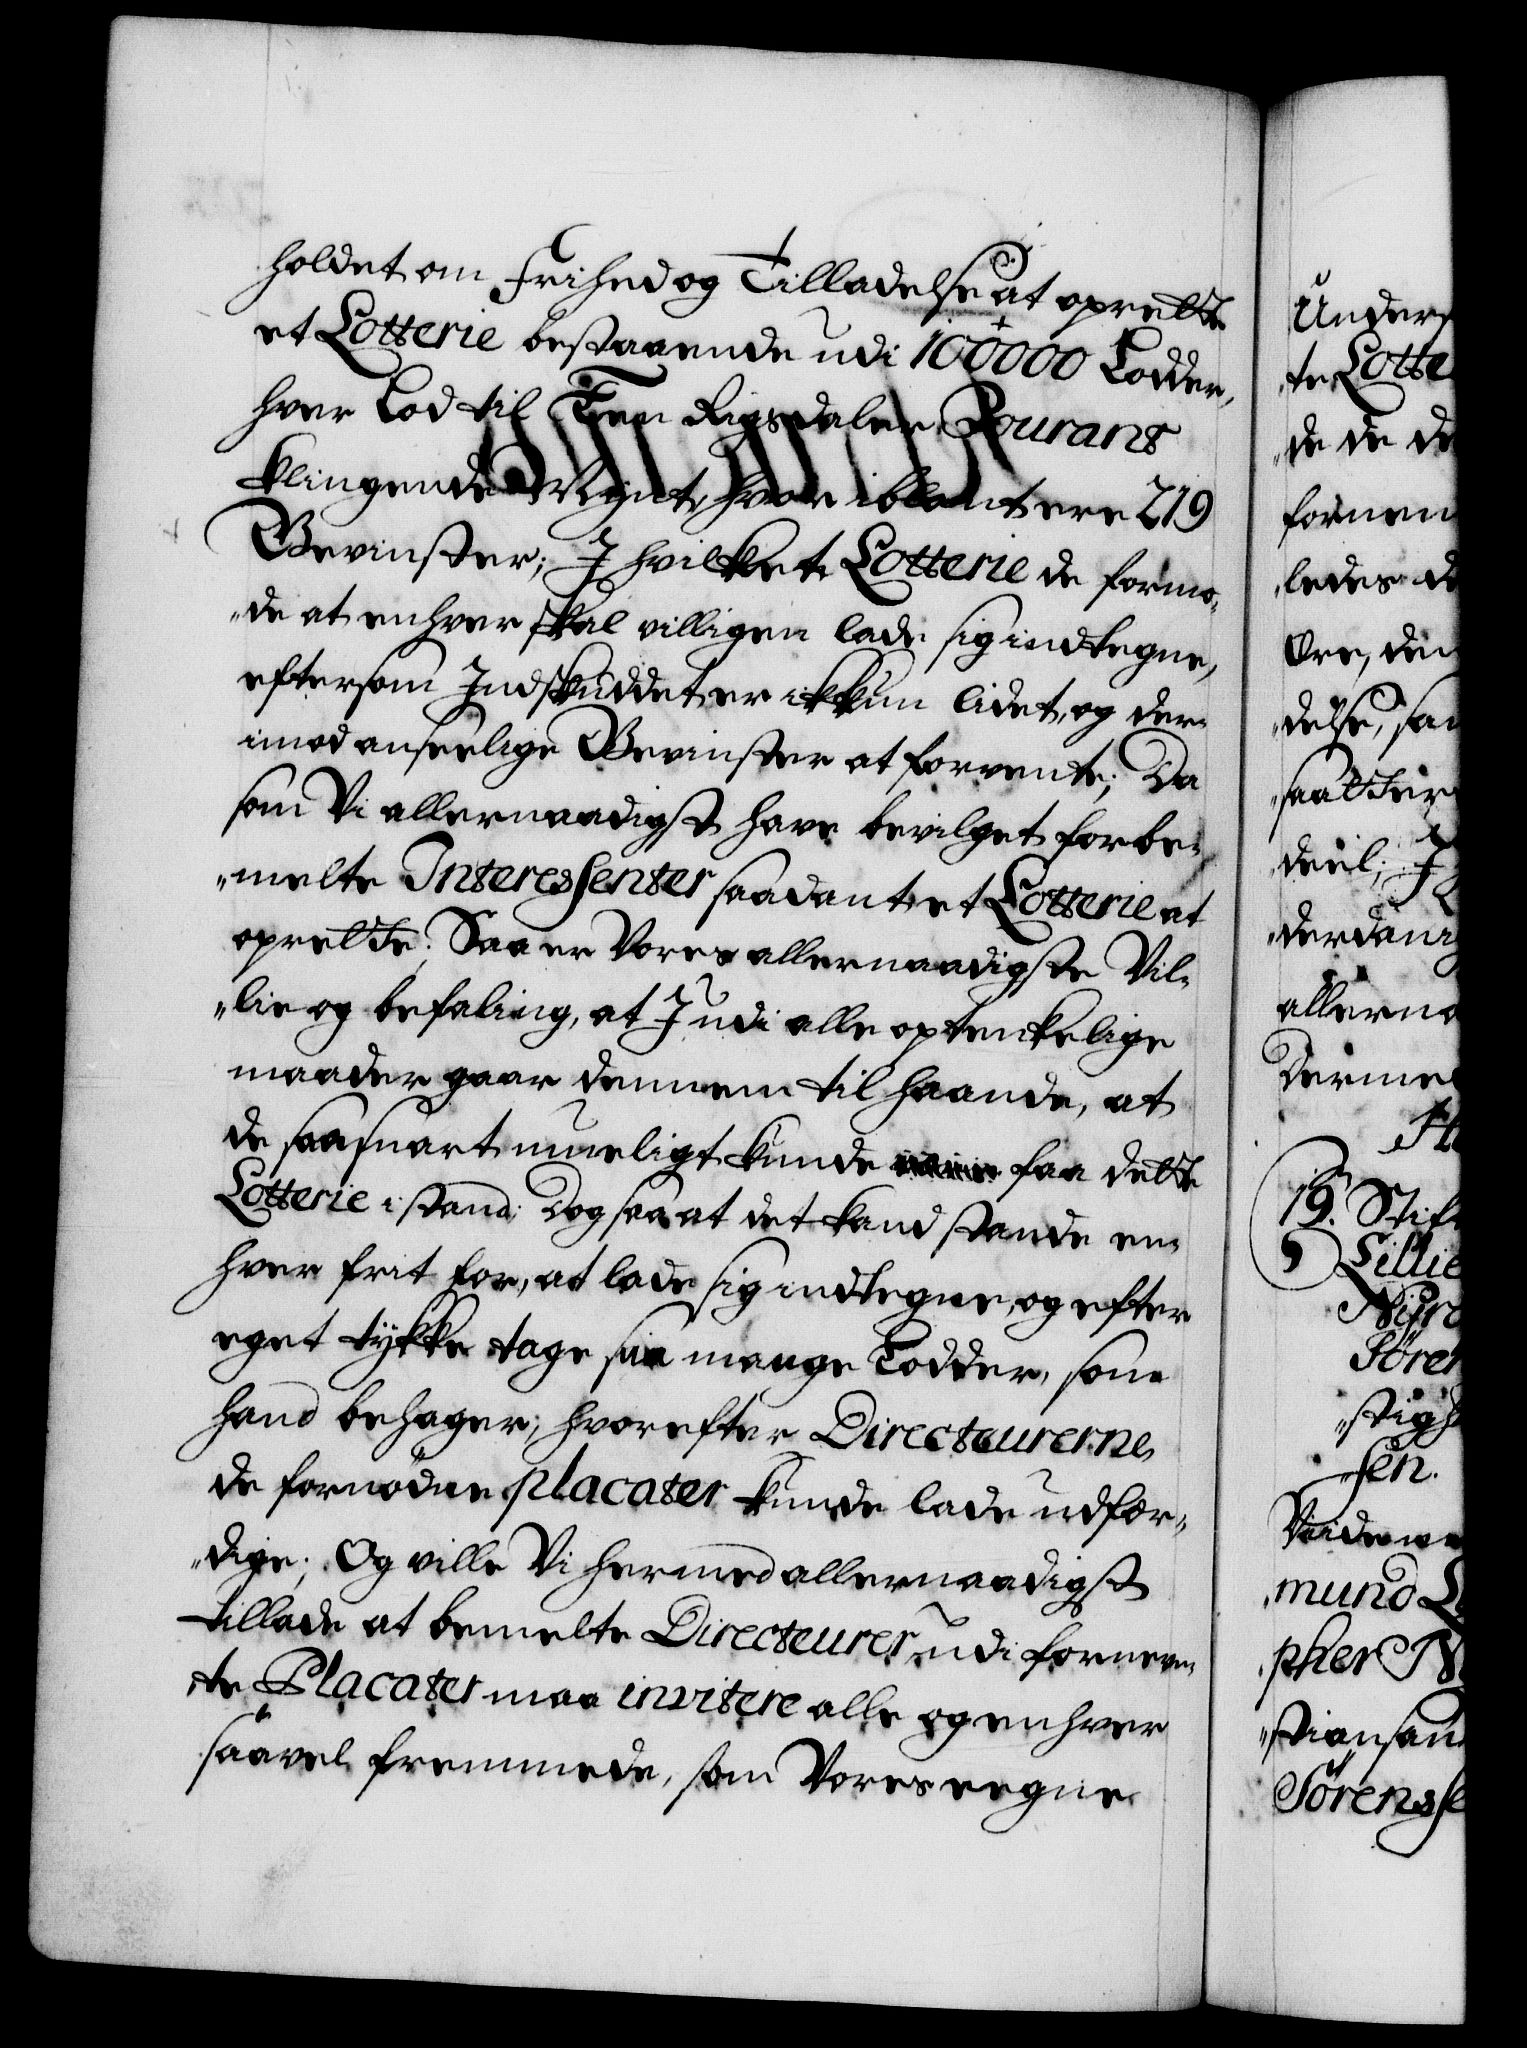 holdet om Frihed og Tilladelse at oprette
et Lotterie bestaaende udi 100000 Lodder,
hver Lod til Een Rigsdaler Courant
klingende Mynt, hvor iblant ere 219
Gevinster; I hvilket Lotterie de formo-
"de at enhver skal villigen lade sig indtegne,
eftersom Indskuddet er ikkun lidet, og der-
imod anseelige Gevinster at forvente; Da
som Vi allernaadigst have bevilget forbe-
"melte Interessenter saadant et Lotterie at
oprette; Saa er Vores allernaadigste Vil-
"lie og befaling, at I udi alle optenkelige
maader gaar dennem til haande, at
de saasnart mueligt kunde faa dette
Lotterie i stand; Dog saa at det kand stande en-
hver frit for, at lade sig indtegne, og efter
eget tykke tage saa mange Lodder, som
hand behager; hvorefter Directeurerne
de fornødne placater kunde lade udfær-
"dige; Og ville Vi hermed allernaadigst
tillade at bemelte Directeurer udi fornevn-
te Placater maa invitere alle og enhver
saavel fremmede, som Vores eegne
Unders
te Lotte
"de de de
fornen
"ledes de
Øre, den
"delse, sa
"saatter
deel; I
"derdani
allerna
Dermed
19. Stift
Lillie
Nyro
Søren
"stigh
sen.
Viide w
mund L
pher N
"stiansan
Sørensse